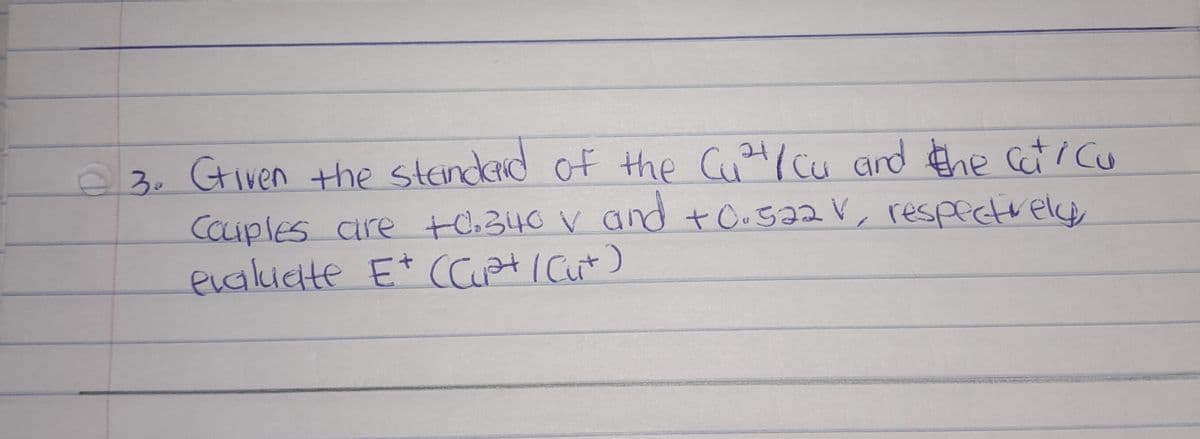 3. Given the standard of the Cu²⁺/Cu and the Cu⁺/Cu
Couples are +0.340 V and +0.522 V, respectively,
evaluate E⁺ (Cu²⁺/Cu⁺)